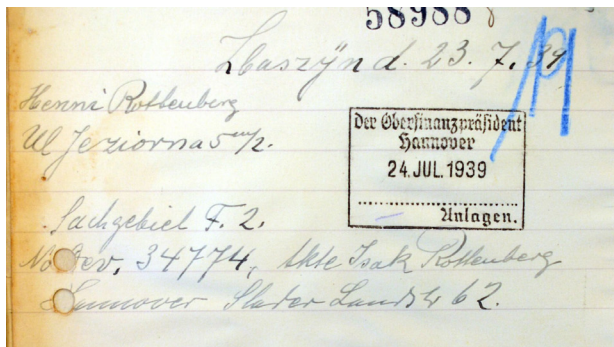 58988
Zbaszyn d. 23. 7. 39
Henni Rottenberg
Ul Jeziorna 5 m/2.
der Oberfinanzpräsident
Hannover
24. JUL. 1939
Anlagen.
Sachgebiet F. 2.
No Dev. 34774, Akte Isak Rottenberg
Hannover Stader Landstr 62.